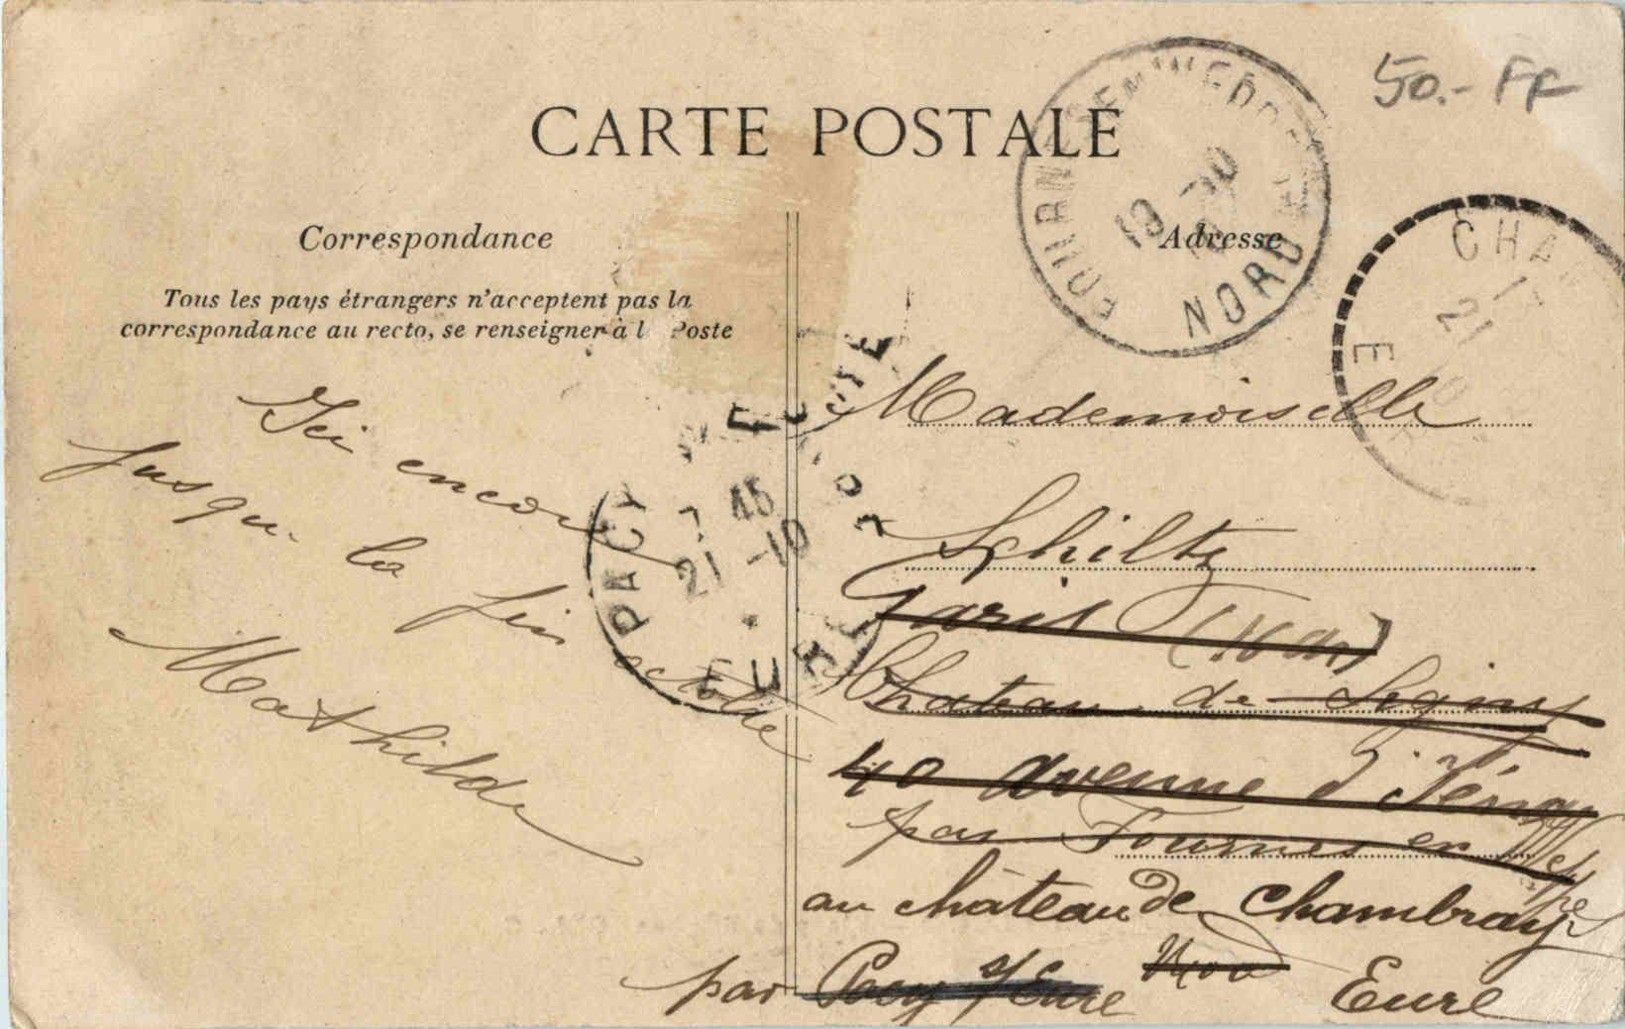 50.- FF
CARTE POSTALE
Correspondance
Adresse
Tous les pays étrangers n'acceptent pas la
correspondance au recto, se renseigner à l Poste
Ici encore
jusqu. la fin octobre
Mathilde
NORD
19 -10
CHAM
21
E
PACY
EURE
7 45
21 -10
Mademoiselle
Schiltz
Paris
Chateau de
40 avenue d'Iéna
par Fournes en
au château de Chambray
par Pacy s/Eure Eure